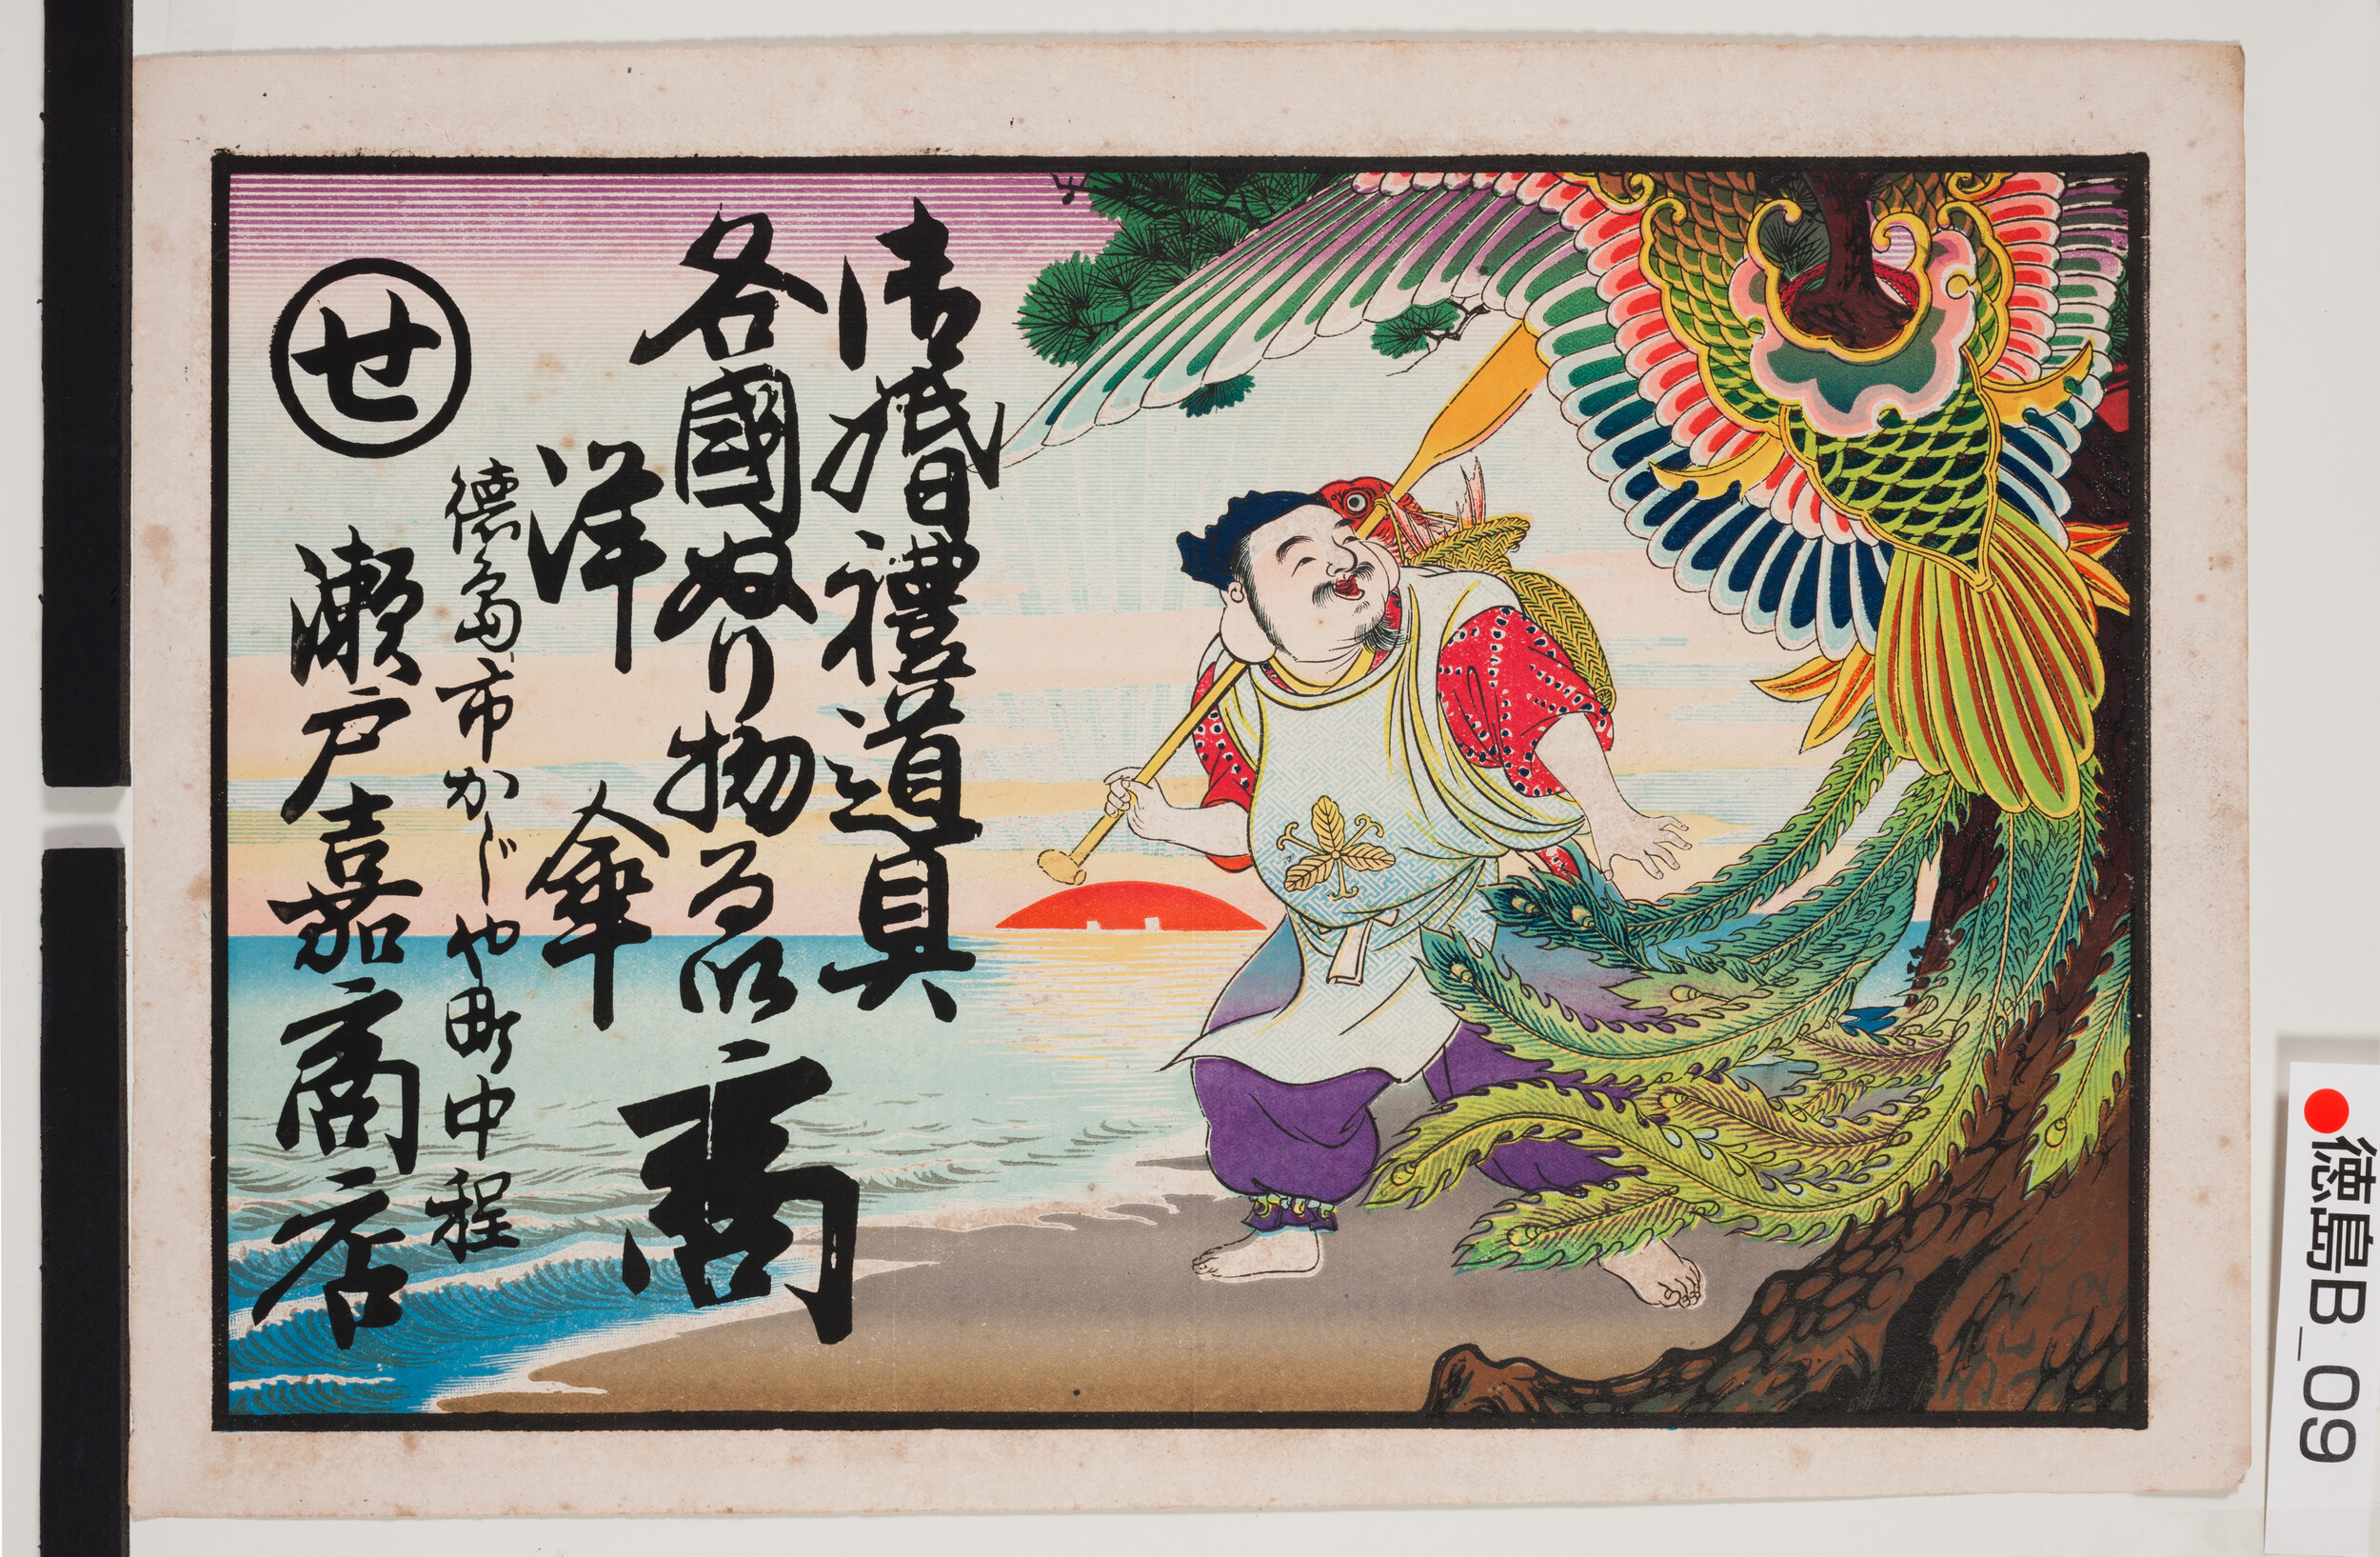 御婚禮道具
各國ぬり物るい
洋傘
商
徳島市かじや町中程
せ
瀬戸嘉商店
徳島B_09